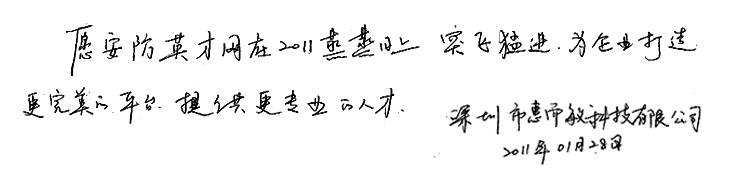 愿安防英才网在2011蒸蒸日上 突飞猛进.为企业打造
更完美的平台.提供更专业的人才.
深圳市惠尔敏科技有限公司
2011年01月28日